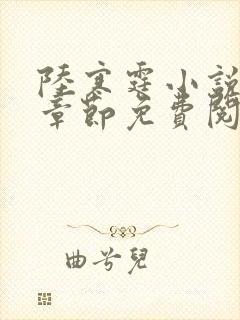 陸寒霆小說
章節免費閱
曲兮兒